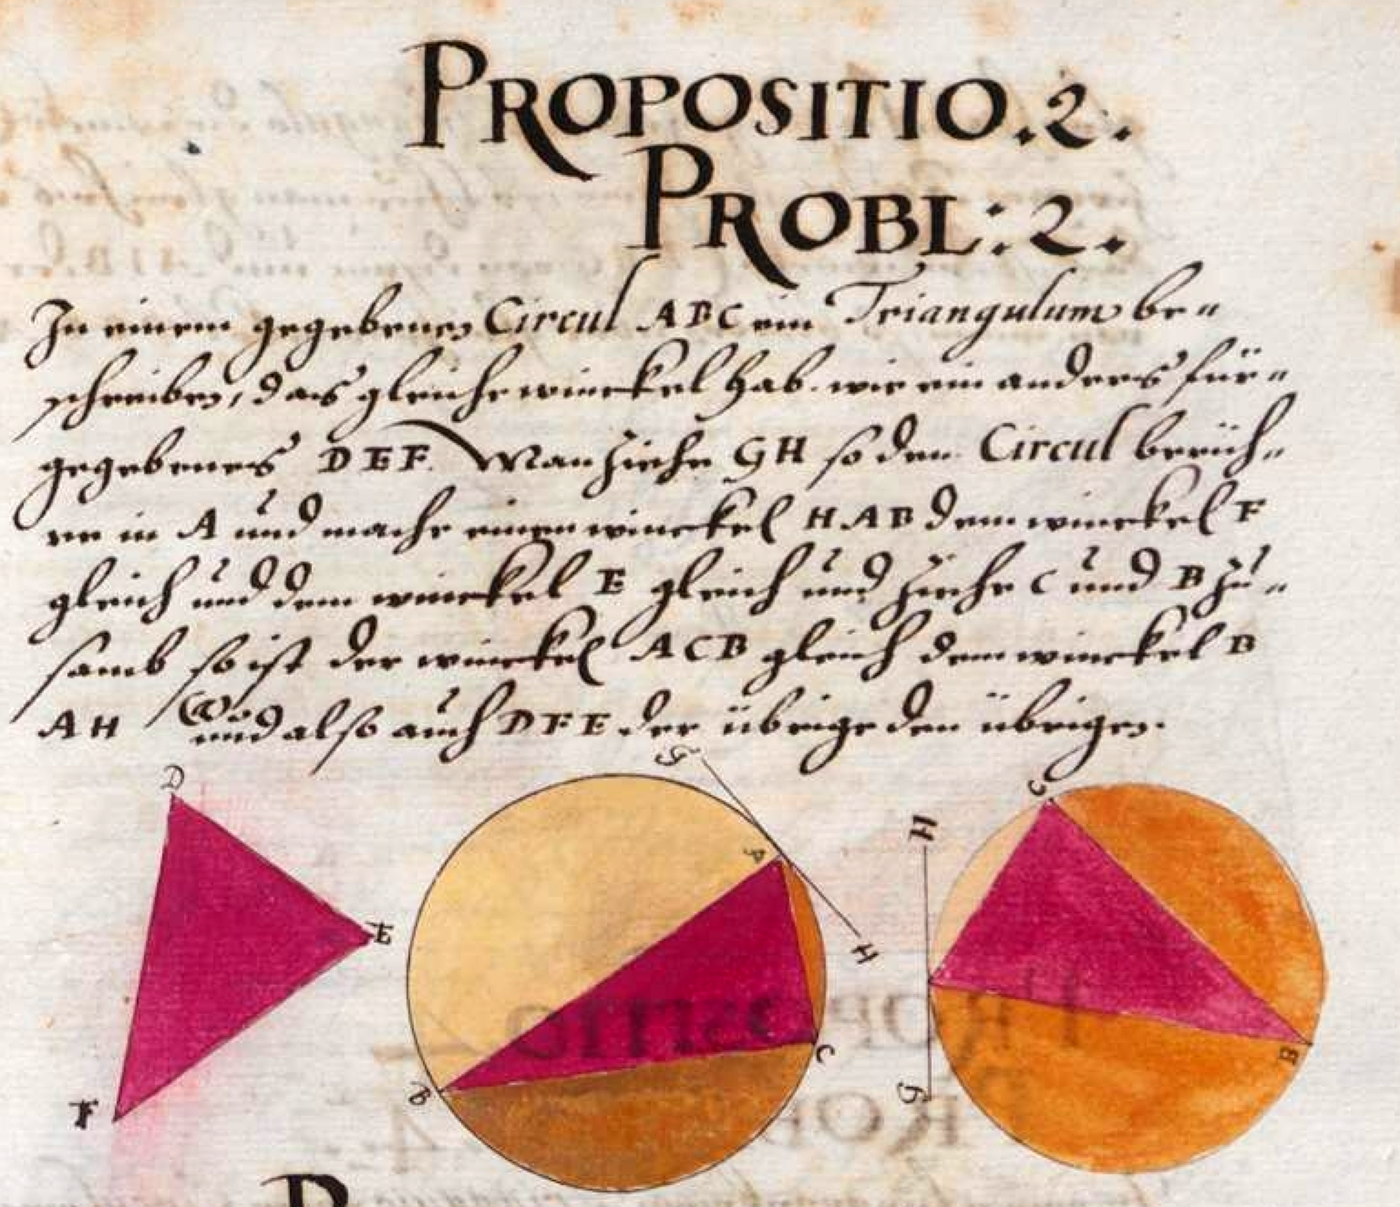 PROPOSITIO. 2.
PROBL: 2.
In einem gegebenen Circul ABC ein Triangulum be„
schreiben, das gleiche winckel hab. wie ein anders für„
gegebenes DEF. Man ziehe GH so den Circul berüh„
re in A und mache einen winckel HAB dem winckel F
gleich und dem winckel E gleich und ziehe C und B zu„
samb so ist der winckel ACB gleich dem winckel B
AH und also auch DFE der übrige den übrigen.
D
E
F
G
A
H
B
C
C
H
B
G